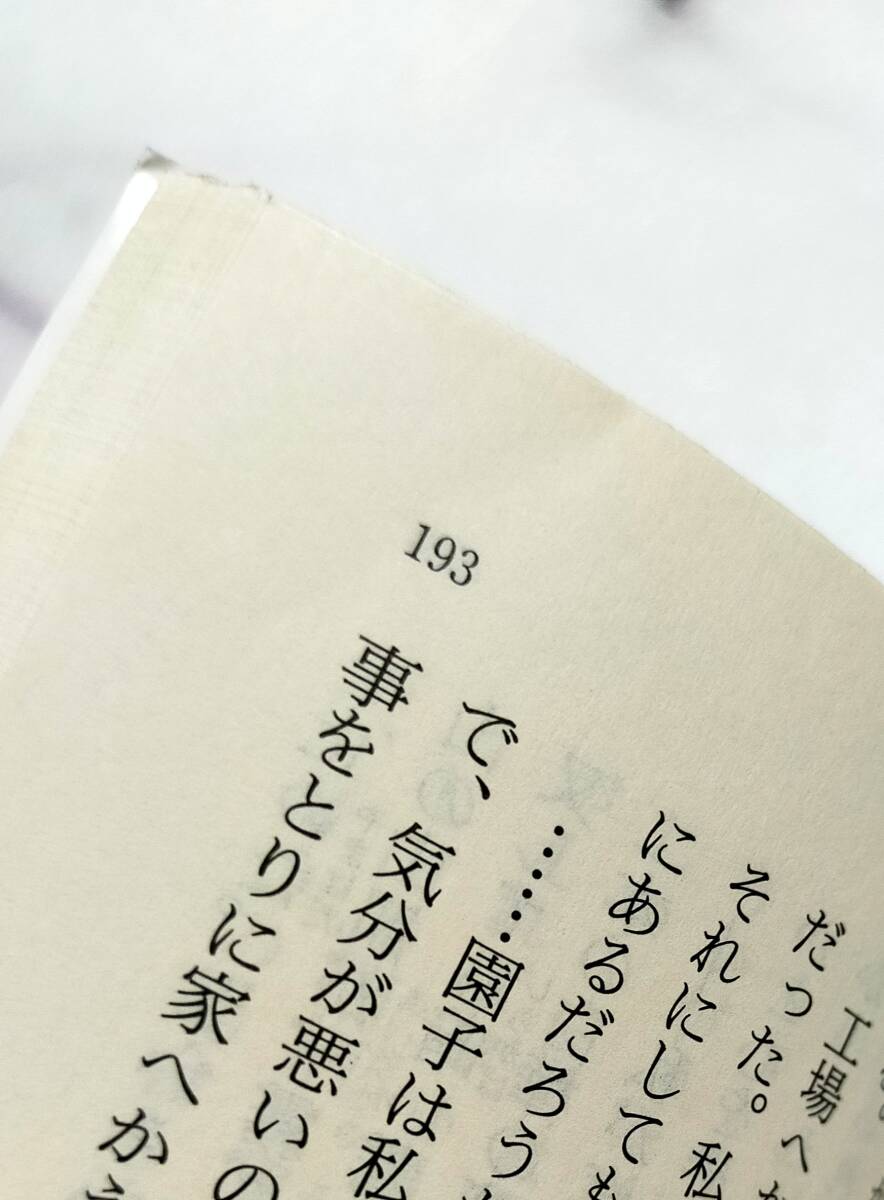 193
工場へ
だった。
それにしても 私
にあるだろう
……園子は私
で、気分が悪いの
事をとりに家へか